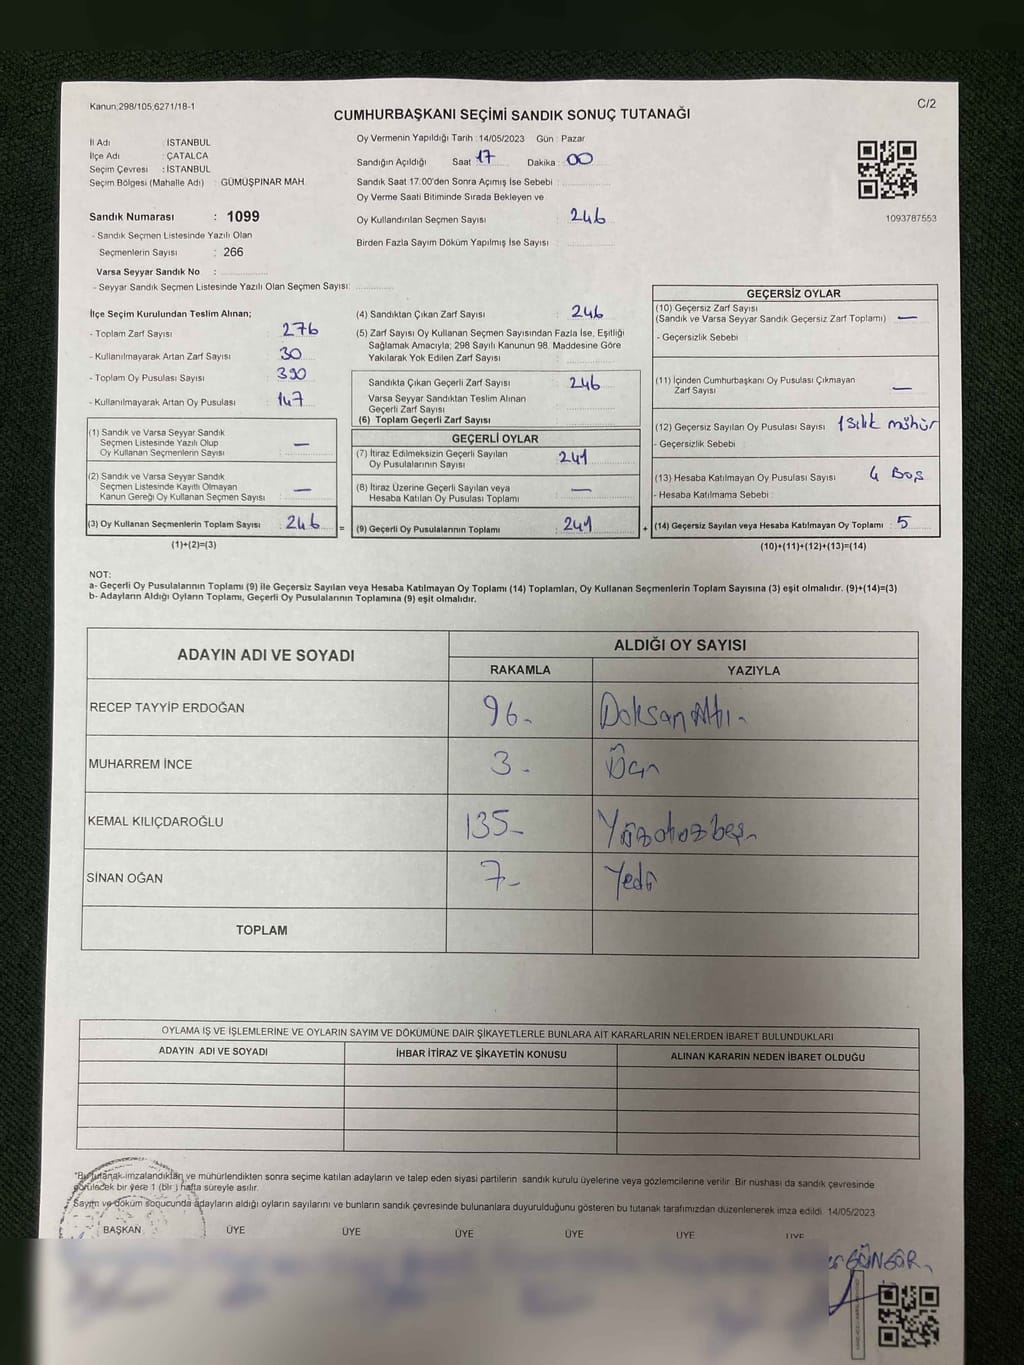 Kanun:298/105,6271/18-1
C/2
CUMHURBAŞKANI SEÇİMİ SANDIK SONUÇ TUTANAĞI
İl Adı : İSTANBUL
İlçe Adı : ÇATALCA
Seçim Çevresi : İSTANBUL
Seçim Bölgesi (Mahalle Adı) : GÜMÜŞPINAR MAH.
Sandık Numarası : 1099
- Sandık Seçmen Listesinde Yazılı Olan
Seçmenlerin Sayısı : 266
Varsa Seyyar Sandık No :
- Seyyar Sandık Seçmen Listesinde Yazılı Olan Seçmen Sayısı:
Oy Vermenin Yapıldığı Tarih : 14/05/2023 Gün : Pazar
Sandığın Açıldığı Saat : 17 Dakika : 00
Sandık Saat 17:00'den Sonra Açımış İse Sebebi :
Oy Verme Saati Bitiminde Sırada Bekleyen ve
Oy Kullandırılan Seçmen Sayısı : 246
Birden Fazla Sayım Döküm Yapılmış İse Sayısı :
1093787553
İlçe Seçim Kurulundan Teslim Alınan;
- Toplam Zarf Sayısı : 276
- Kullanılmayarak Artan Zarf Sayısı : 30
- Toplam Oy Pusulası Sayısı : 390
- Kullanılmayarak Artan Oy Pusulası : 147
(1) Sandık ve Varsa Seyyar Sandık
Seçmen Listesinde Yazılı Olup
Oy Kullanan Seçmenlerin Sayısı : —
(2) Sandık ve Varsa Seyyar Sandık
Seçmen Listesinde Kayıtlı Olmayan
Kanun Gereği Oy Kullanan Seçmen Sayısı : —
(3) Oy Kullanan Seçmenlerin Toplam Sayısı : 246
(1)+(2)=(3)
=
(4) Sandıktan Çıkan Zarf Sayısı : 246
(5) Zarf Sayısı Oy Kullanan Seçmen Sayısından Fazla İse, Eşitliği
Sağlamak Amacıyla; 298 Sayılı Kanunun 98. Maddesine Göre
Yakılarak Yok Edilen Zarf Sayısı :
Sandıkta Çıkan Geçerli Zarf Sayısı : 246
Varsa Seyyar Sandıktan Teslim Alınan
Geçerli Zarf Sayısı :
(6) Toplam Geçerli Zarf Sayısı :
GEÇERLİ OYLAR
(7) İtiraz Edilmeksizin Geçerli Sayılan
Oy Pusulalarının Sayısı : 241
(8) İtiraz Üzerine Geçerli Sayılan veya
Hesaba Katılan Oy Pusulası Toplamı : —
(9) Geçerli Oy Pusulalarının Toplamı : 241
+
GEÇERSİZ OYLAR
(10) Geçersiz Zarf Sayısı
(Sandık ve Varsa Seyyar Sandık Geçersiz Zarf Toplamı) : —
- Geçersizlik Sebebi :
(11) İçinden Cumhurbaşkanı Oy Pusulası Çıkmayan
Zarf Sayısı : —
(12) Geçersiz Sayılan Oy Pusulası Sayısı : 1 Silik mühür
- Geçersizlik Sebebi :
(13) Hesaba Katılmayan Oy Pusulası Sayısı : 4 Boş
- Hesaba Katılmama Sebebi :
(14) Geçersiz Sayılan veya Hesaba Katılmayan Oy Toplamı : 5
(10)+(11)+(12)+(13)=(14)
NOT:
a- Geçerli Oy Pusulalarının Toplamı (9) ile Geçersiz Sayılan veya Hesaba Katılmayan Oy Toplamı (14) Toplamları, Oy Kullanan Seçmenlerin Toplam Sayısına (3) eşit olmalıdır. (9)+(14)=(3)
b- Adayların Aldığı Oyların Toplamı, Geçerli Oy Pusulalarının Toplamına (9) eşit olmalıdır.
ADAYIN ADI VE SOYADI
ALDIĞI OY SAYISI
RAKAMLA YAZIYLA
RECEP TAYYİP ERDOĞAN 96- Doksan Altı-
MUHARREM İNCE 3- Üç
KEMAL KILIÇDAROĞLU 135- Yüzotuzbeş
SİNAN OĞAN 7- Yedi
TOPLAM
OYLAMA İŞ VE İŞLEMLERİNE VE OYLARIN SAYIM VE DÖKÜMÜNE DAİR ŞİKAYETLERLE BUNLARA AİT KARARLARIN NELERDEN İBARET BULUNDUKLARI
ADAYIN ADI VE SOYADI İHBAR İTİRAZ VE ŞİKAYETİN KONUSU ALINAN KARARIN NEDEN İBARET OLDUĞU
*Bu tutanak imzalandıktan ve mühürlendikten sonra seçime katılan adayların ve talep eden siyasi partilerin sandık kurulu üyelerine veya gözlemcilerine verilir. Bir nüshası da sandık çevresinde
görülecek bir yere 1 (bir ) hafta süreyle asılır.
Sayım ve döküm sonucunda adayların aldığı oyların sayılarını ve bunların sandık çevresinde bulunanlara duyurulduğunu gösteren bu tutanak tarafımızdan düzenlenerek imza edildi. 14/05/2023
BAŞKAN ÜYE ÜYE ÜYE ÜYE ÜYE ÜYE
GÜNGÖR